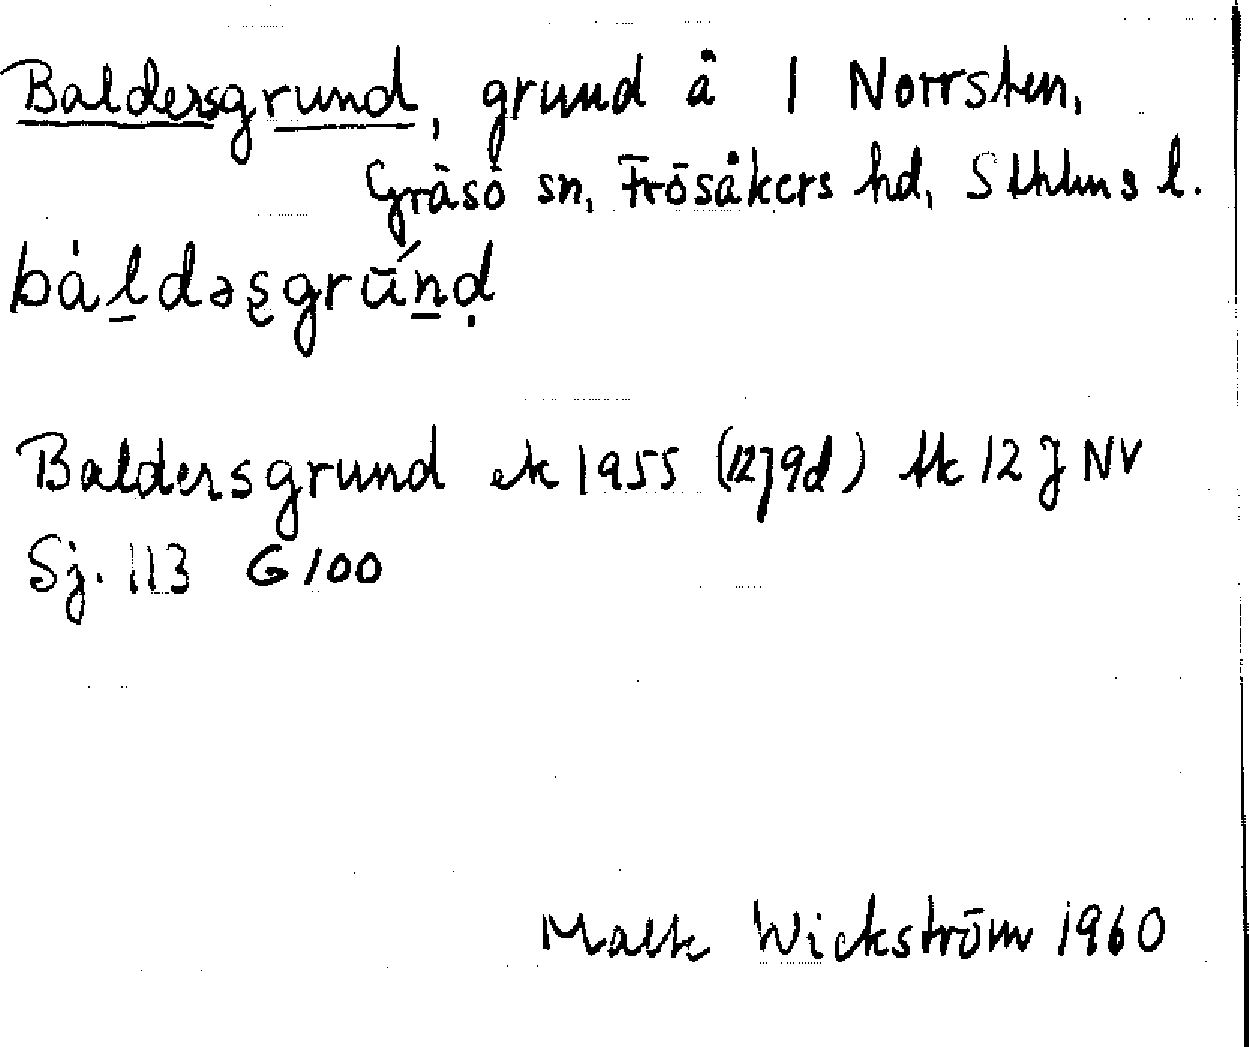 Baldersgrund, grund å 1 Norrsten,
Gräsö sn, Frösåkers hd, Sthlms l.
bàldəsgrùnd
Baldersgrund ek 1955 (12J9d) tk 12 J NV
Sj. 113 G 100
Wickström 1960